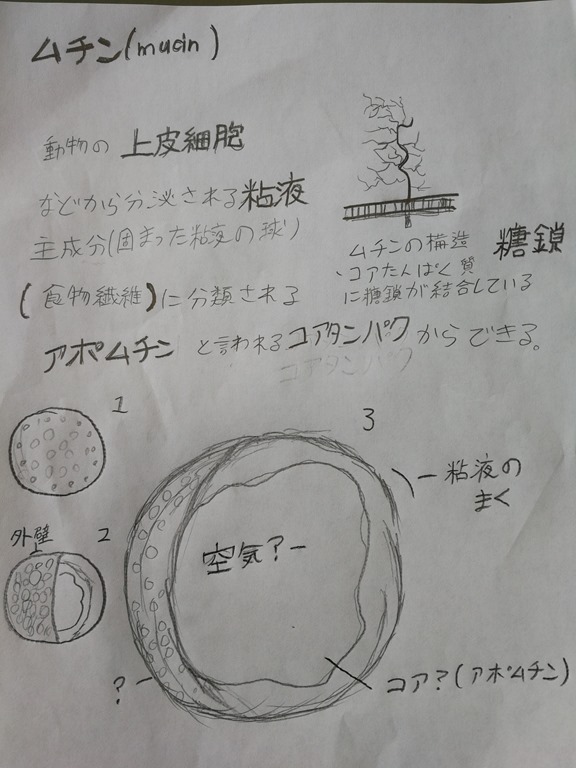 ムチン(mucin)
動物の 上皮細胞
などから分泌される粘液
主成分(固まった粘液の球)
(食物繊維)に分類される
アポムチン と言われるコアタンパクからできる。
コアタンパク
ムチンの構造 糖鎖
、コアたんぱく質
に糖鎖が結合している
1
外壁
2
3
粘液の
まく
空気?
?
コア?(アポムチン)